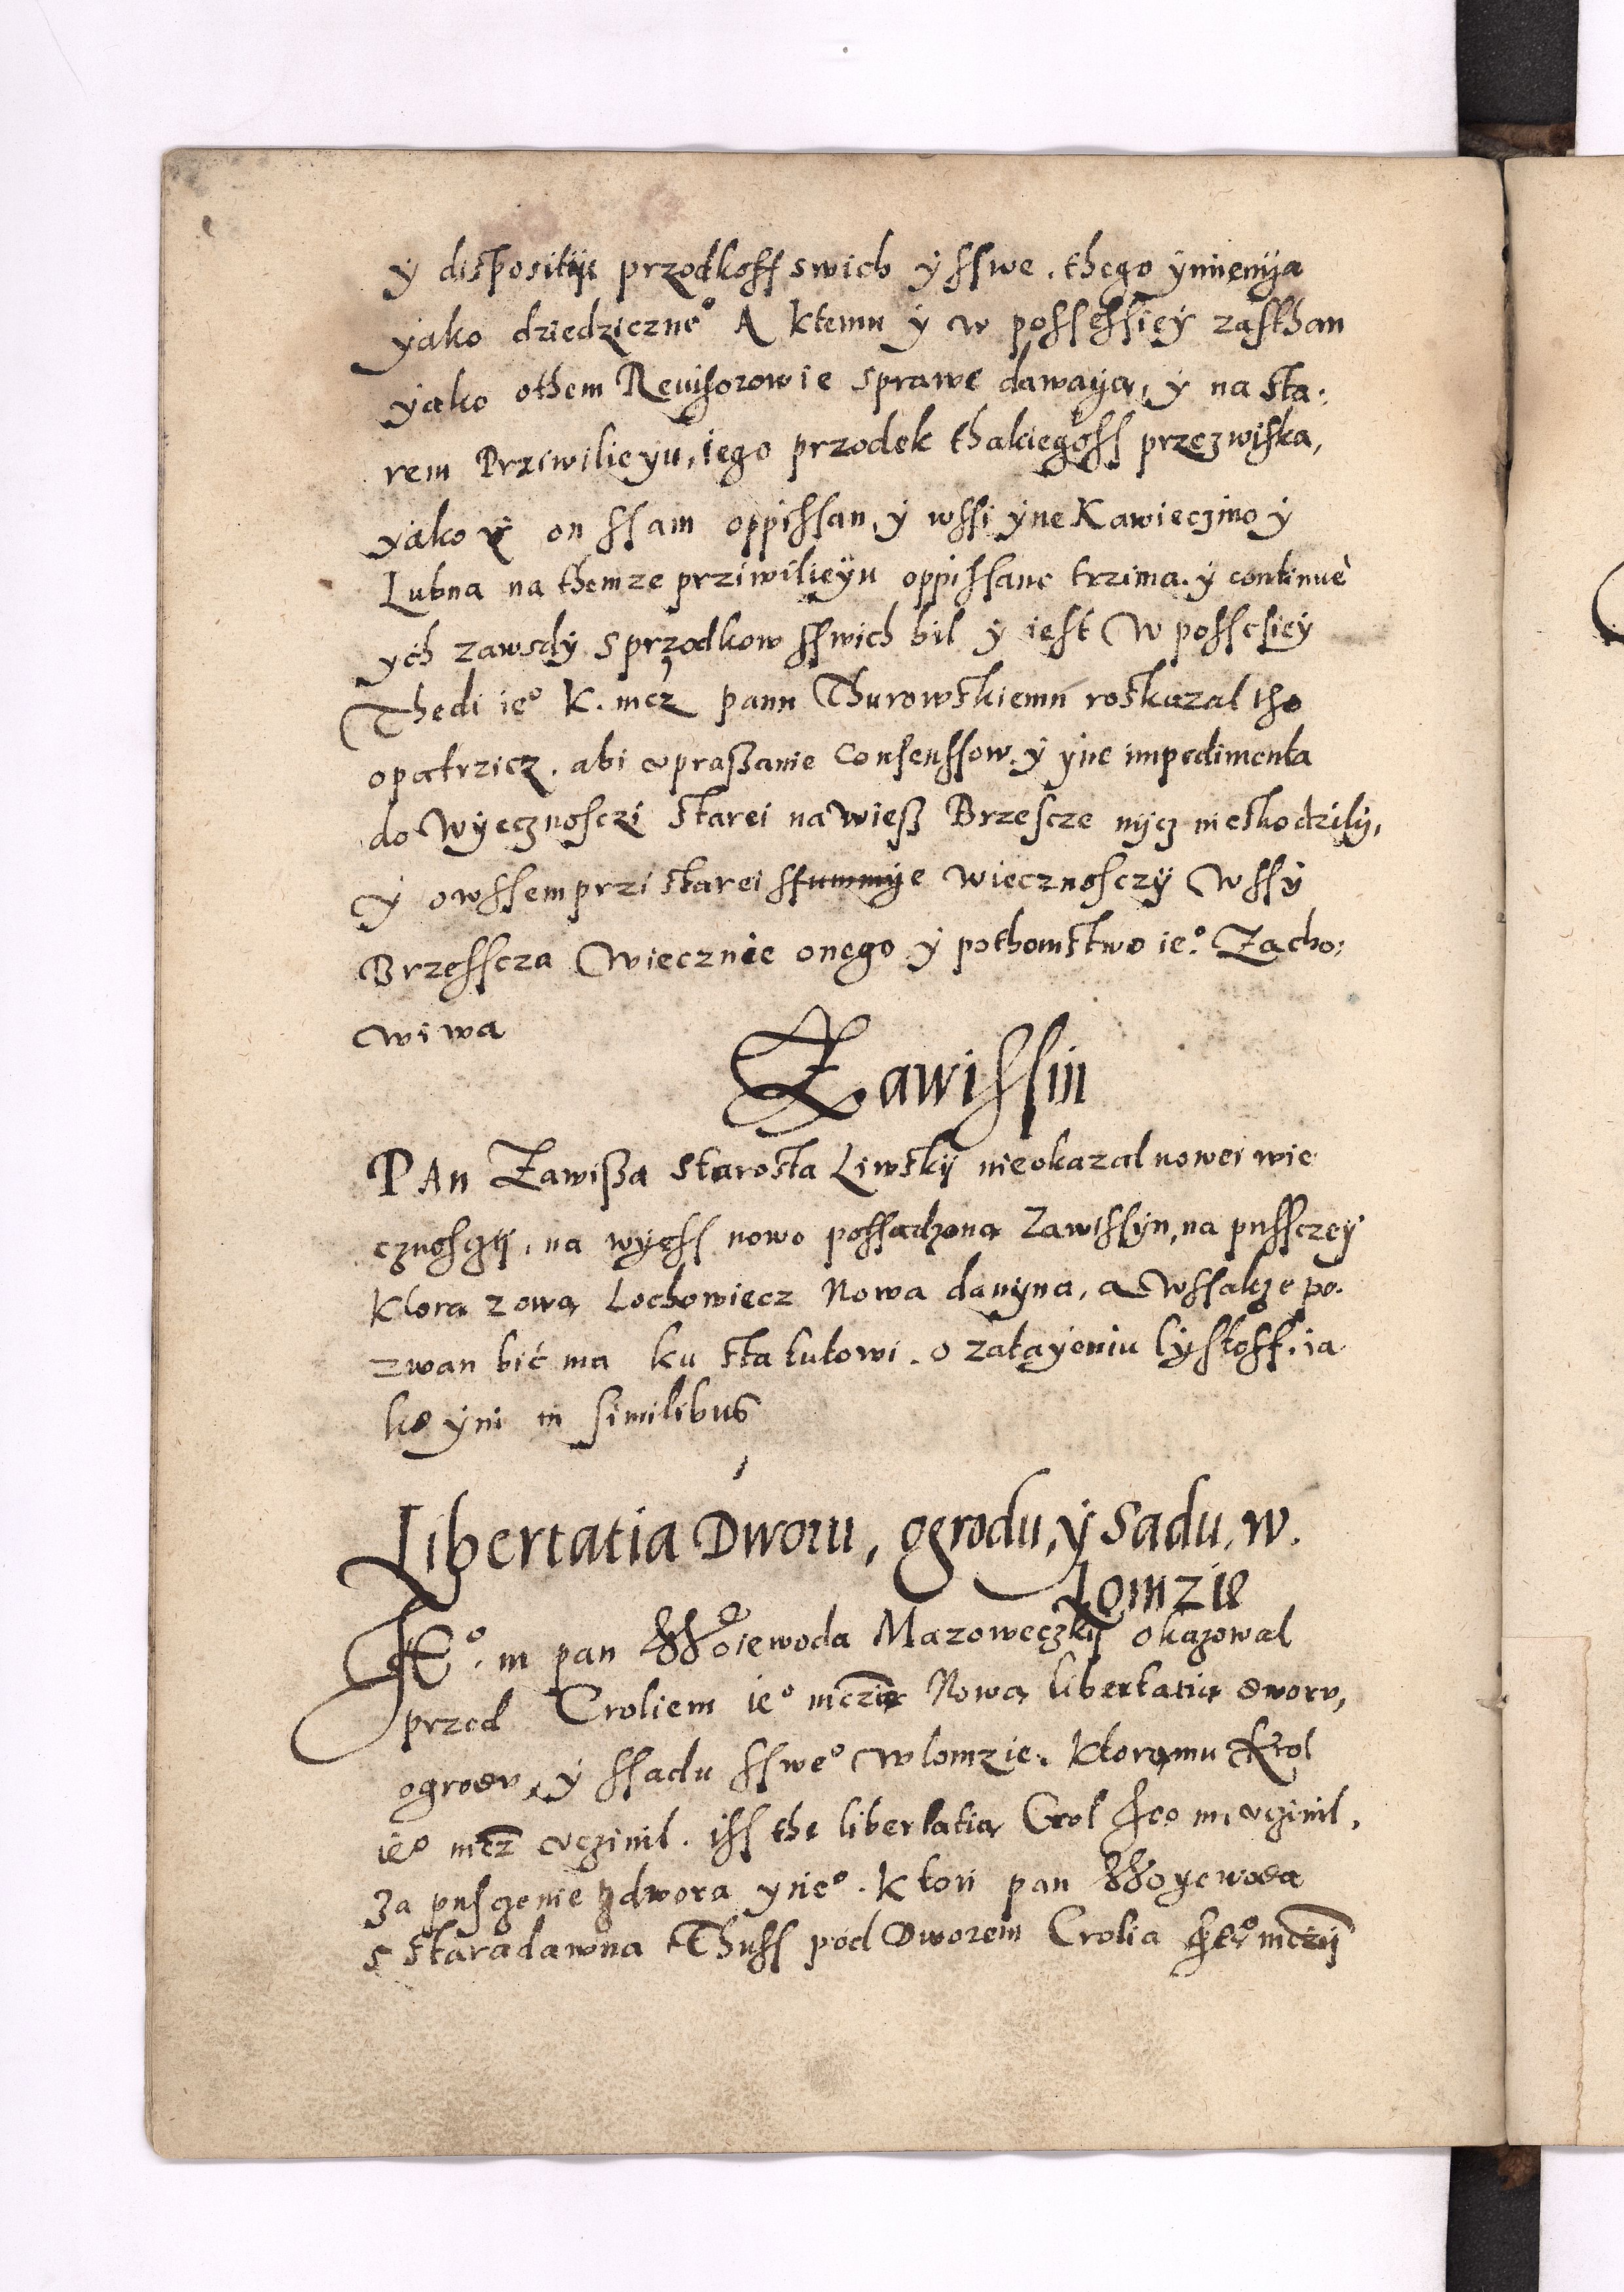 ẏ dispositiii przodkoff swich ẏ sswe. thego ẏmienẏa
yako dziedziczne° A ktemu ẏ w possessieẏ zasthan
yako othem Reuisorowie sprawe dawaẏa, ẏ na sta:
rem Prziwilieyu, iego przodek thakiegoss przezwiska,
yako ẏ on ssam oppissan, ẏ wssi ẏne Kawieczino ẏ
Lubna na themze prziwilieẏu oppissane trzima. ẏ continuè
ych zawsdẏ s przodkow sswich bil ẏ iest w possesieẏ
Thedi ie° K. mcz panu Thurowskiemu roskazal tho
opatrzicz. abi vpraßanie Consenssow. ẏ ẏne impedimenta
do Wẏecznosczi starei na wieß Brzescze nẏcz nieskodzilẏ,
ẏ owssem przi starei ssummẏe wiecznosczẏ wssẏ
Brzesscza wiecznie onego ẏ pothomstwo ie°. Zacho:
wiwa
Zawissin
PAn Zawißa starosta Liwskij nieokazal nowei wie
cznosczij, na wẏess nowo possadzona Zawissẏn, na pussczeẏ
Ktora zowa Lochowiecz Nowa danẏna, a wssakze po.
zwan bić ma ku statutowi. o zataẏeniu lẏstoff. ia
ko ẏni in similibus
Libertatia Dworu, ogrodu, ẏ sadu. w.
Lomzie
JE°. m pan Woiewoda Mazoweczkij okazowal
przed Croliem ie° mczia Nowa libertatia dworu,
ogrodu, ẏ ssadu sswe° w lomzie. Ktoremu Krol
ie° mcz vczinil. iss the libertatia Crol Jeo m. vczinil.
Za pusczenie zdwora ẏnie°. Ktori pan Woẏewoda
s staradawna Thuss pod Dworem Crolia Je° mczij